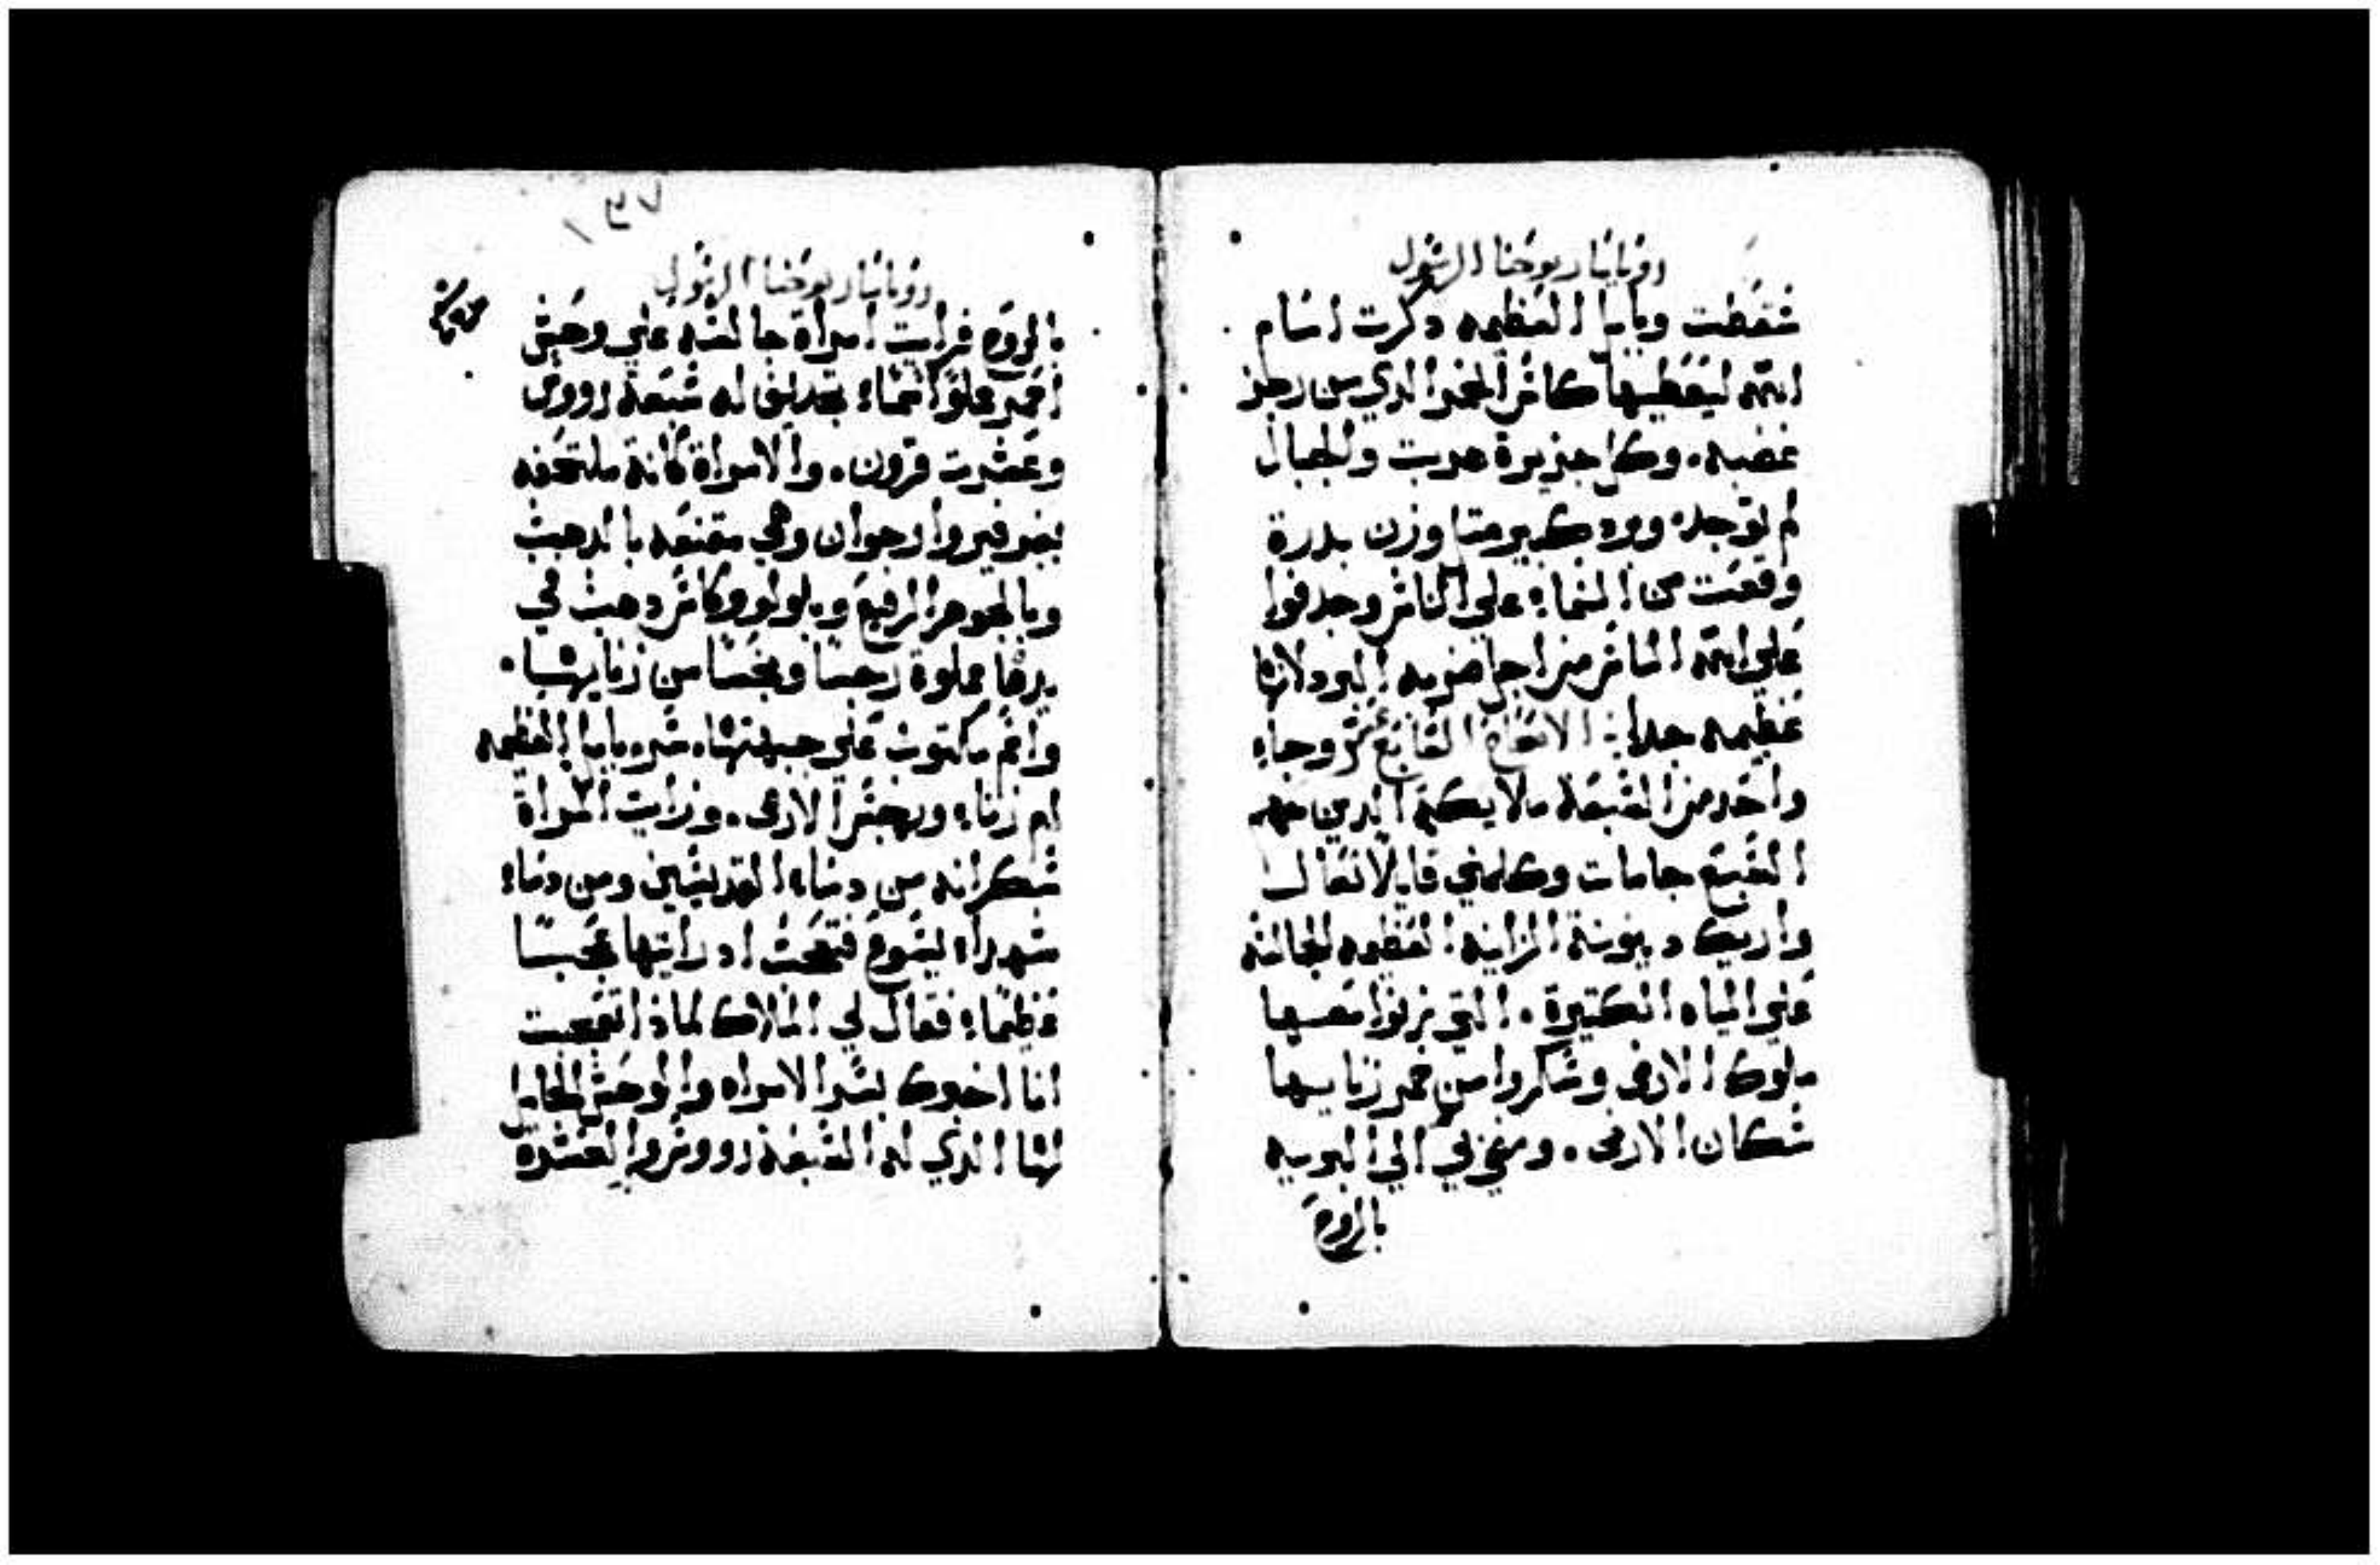 رويا مار يوحنا الرسول
سقطت وبابل العظيمه دكرت امام
الله ليعطيها كاس الخمر الدي من رجز
غضبه. وكل جزيرة هربت والجبال
لم توجد. وبرد كبير مثل وزن بدرة
وقعت من السماء علي الناس وجدفوا
علي الله الناس من اجل ضربه البرد لانها
عظيمه جدا: الاصحاح السابع عشر وجاء
واحد من السبعة ملايكة الدين معهم
السبع جامات وكلمني قايلا تعال
واريك دينونة الزانيه العظيمه الجالسه
علي المياه الكتيرة. التي زنوا معها
ملوك الارض وسكروا من خمر زناييها
سكان الارض. ومضي بي الي البريه
بالروح
٢٥٧
رويا مار يوحنا الرسول
بالروح فرايت امراة جالسه علي وحش
احمر مملوا اسماء تجديف له سبعة رووس
وعشرت قرون. والامراة كانة ملتحفه
ببرفير وارجوان وهي مقنعه بالدهب
وبالجوهر الرفيع وبلولو وكاس دهب في
يدها مملوة رجسا ونجسا من زنايها.
واسم مكتوب علي جبهتها. سر. بابل العظيمه
ام زناء ورجس الارض. ورايت المراة
سكرانه من دماء القديسين ومن دماء
شهداء يسوع فتعجبت اد رايتها عجبا
عظيما؛ فقال لي الملاك لماذا تعجبت
انا اخبرك بسر الامراه والوحش الحامل
لها الذي له السبعة رووس والعشرة